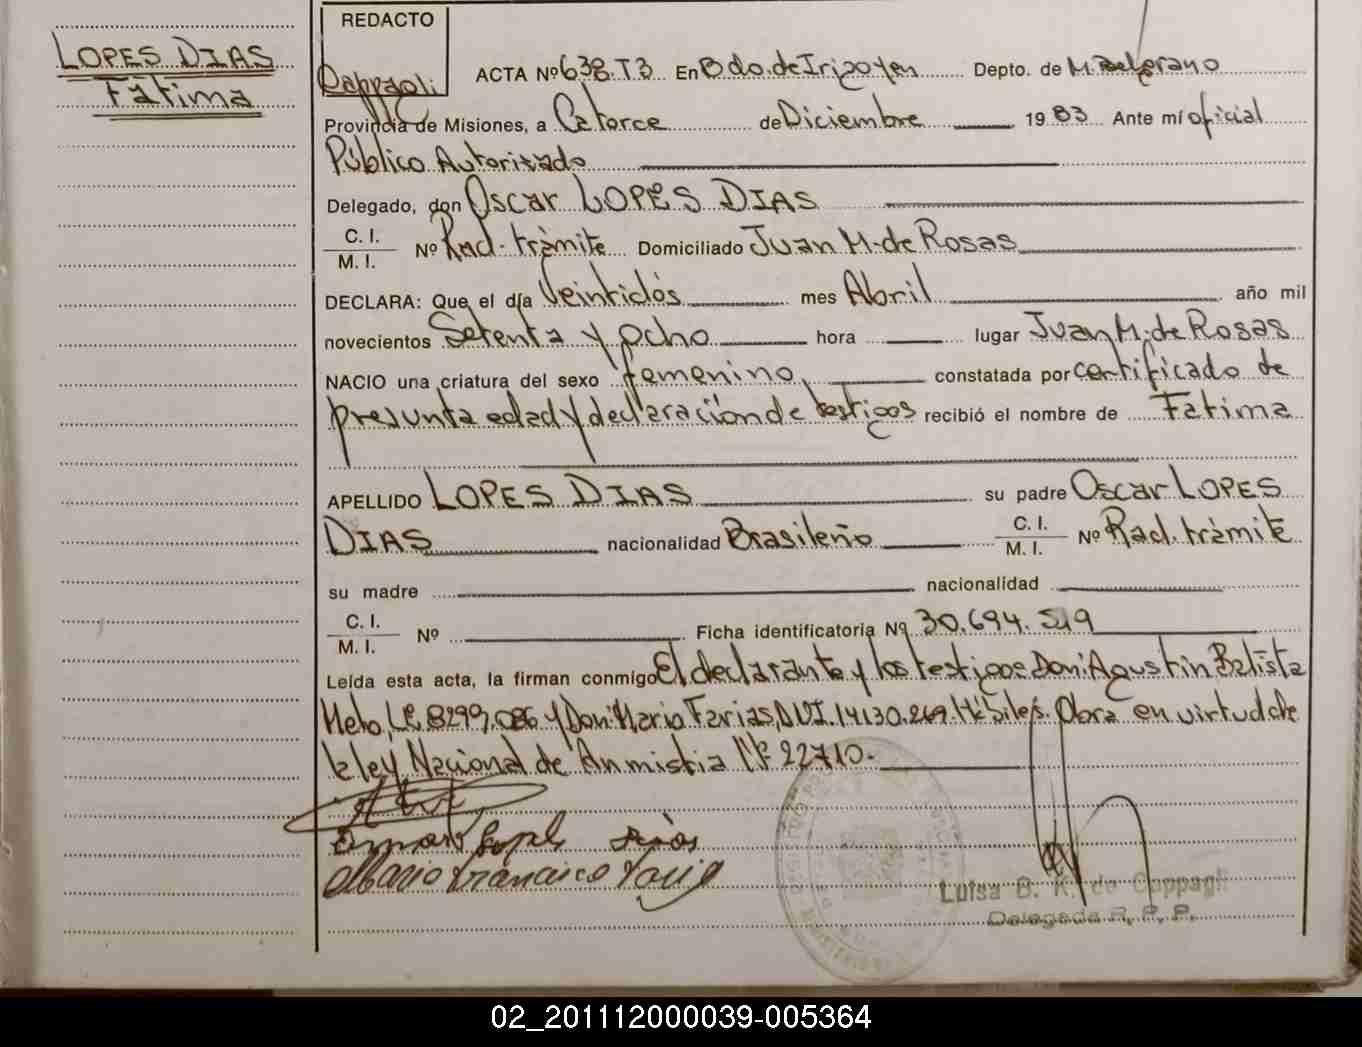 LOPES DIAS
Fátima
REDACTO
Cappagli
ACTA Nº 638.T3 En Bdo. de Irigoyen Depto. de M. Belgrano
Provincia de Misiones, a Catorce de Diciembre 1983 Ante mí oficial
Público Autorizado
Delegado, don Oscar LOPES DIAS
C. I.
M. I.
Nº Rad. tràmite Domiciliado Juan M. de Rosas
DECLARA: Que el día Veintidós mes Abril año mil
novecientos Setenta y ocho hora lugar Juan M. de Rosas
NACIO una criatura del sexo femenino, constatada por certificado de
presunta edad y declaración de testigos recibió el nombre de Fátima
APELLIDO LOPES DIAS su padre Oscar LOPES
DIAS nacionalidad Brasileño C. I.
M. I. Nº Rad. tràmite
su madre nacionalidad
C. I.
M. I.
Nº Ficha identificatoria Nº 30.694.519
Leída esta acta, la firman conmigo El declarante y los testigos: Don: Agustin Batista
Neto, L.E. 8299.086 y Don: Mario Farias, D.U.I. 14130.269. Hábiles. Obra en virtud de
la ley Nacional de Anmistia Nº 22710.-
Mario Francisco Farias
Luisa B. K. de Cappagli
Delegada R. P. P.
02_201112000039-005364